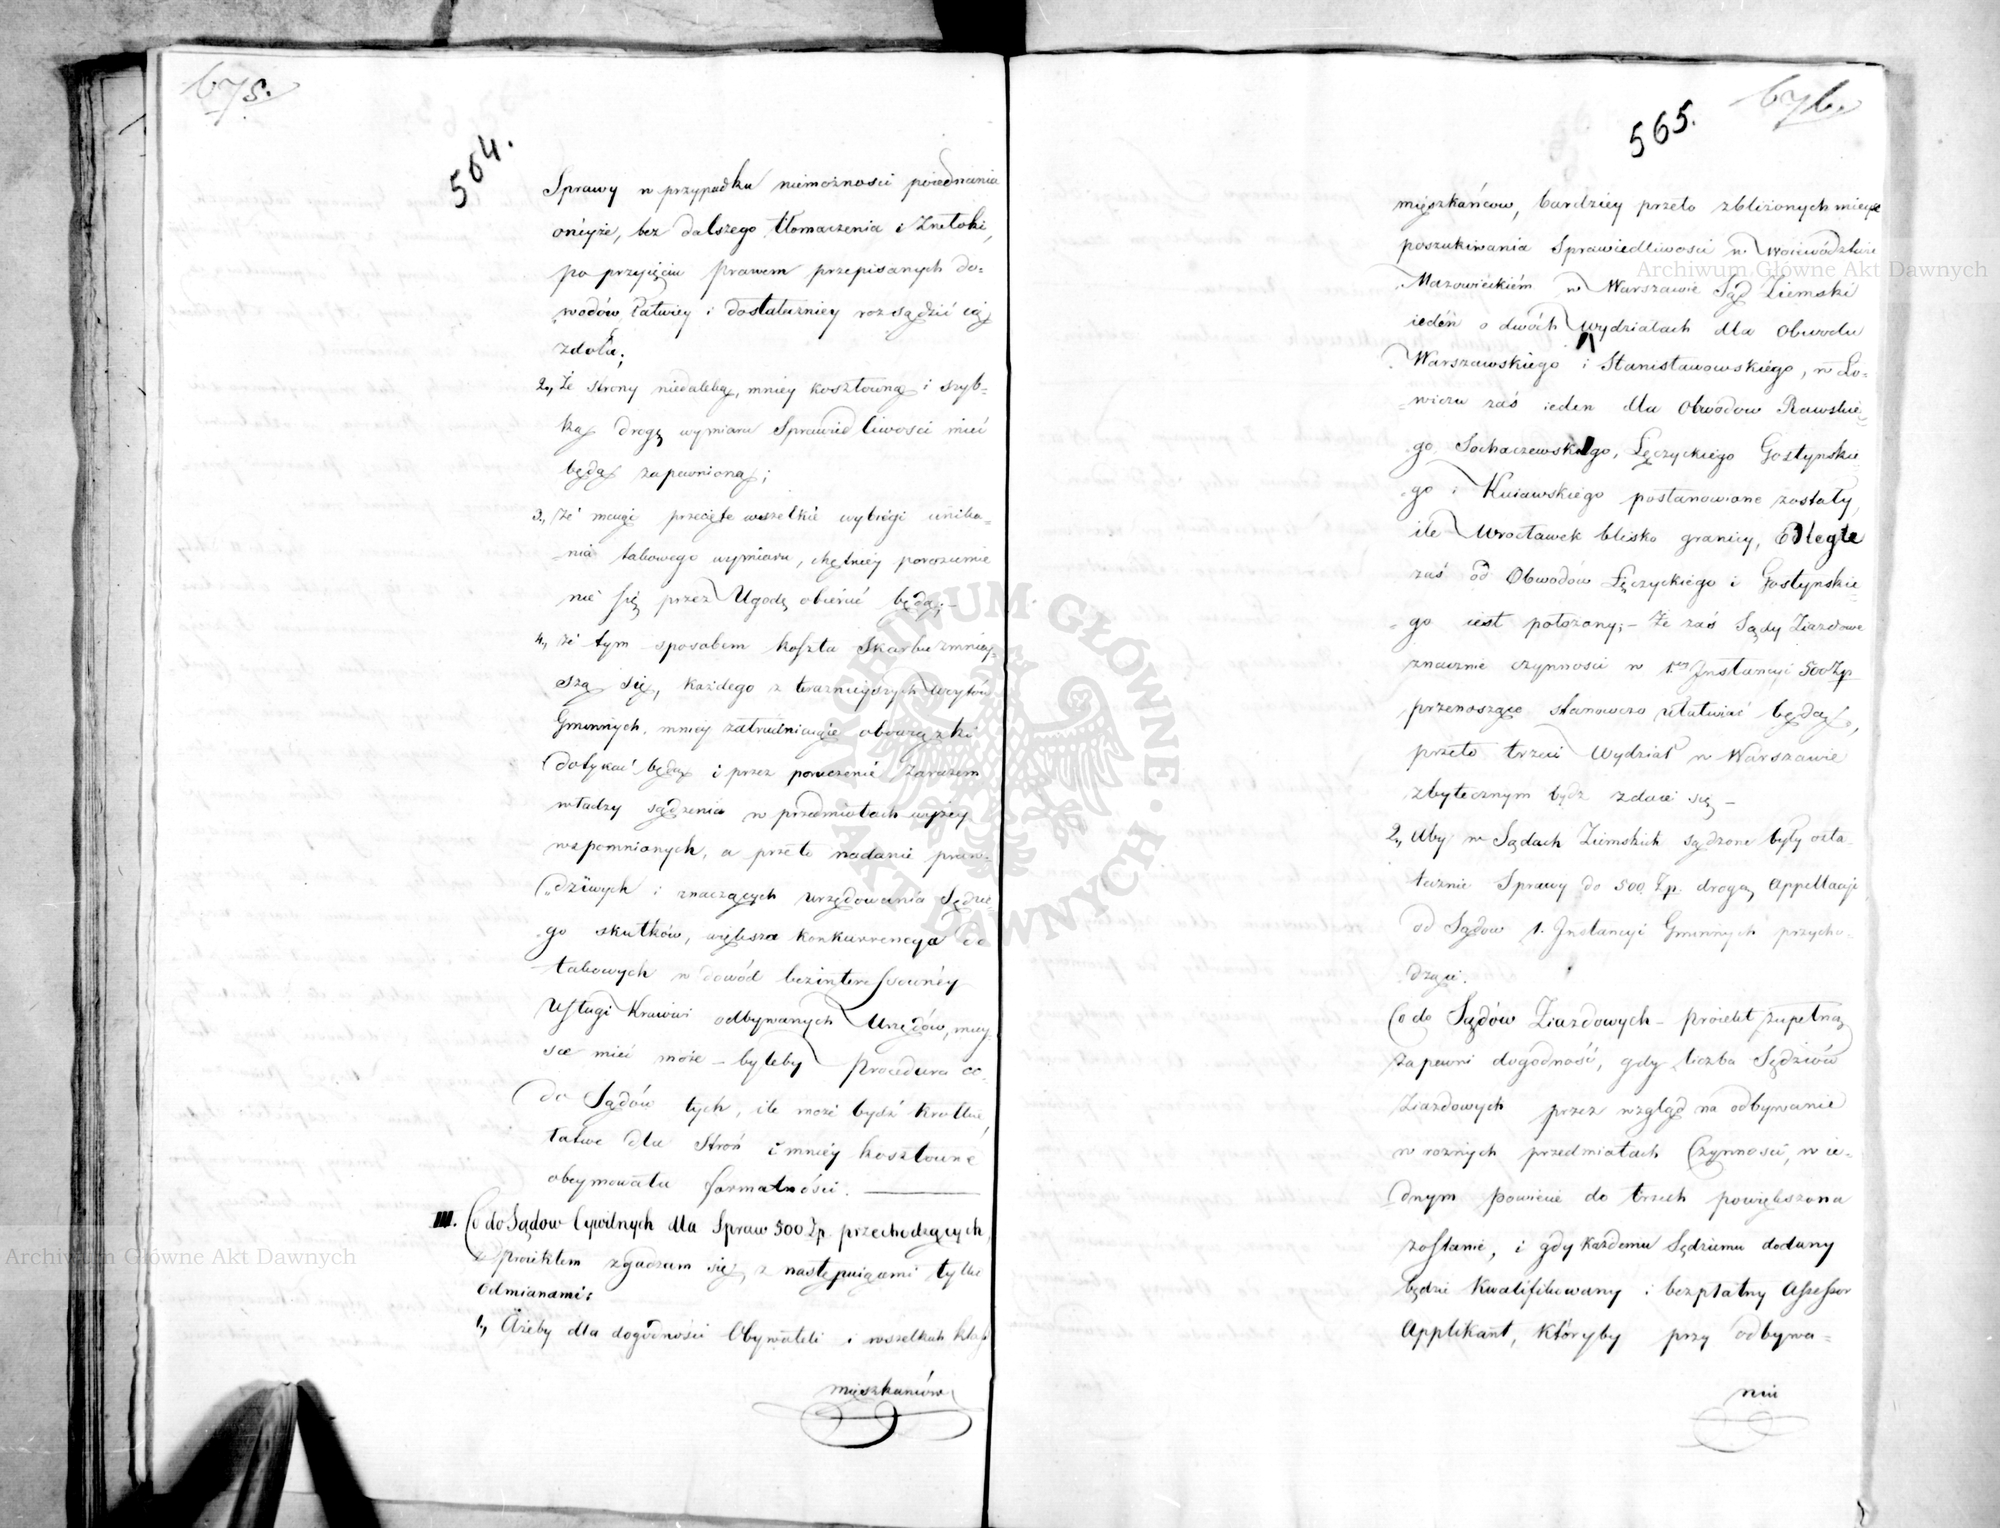 675.
564.
Sprawy w przypadku niemożności poiednania
onéyże, bez dalszego tłomaczenia i Zwłoki,
po przyięciu prawem przepisanych do-
wodów łatwiey i dostateczniey rozsądzić ią
zdoła;
2., Że strony niedaleką, mniey kosztowną i szyb-
ką drogę wymiaru Sprawiedliwości mieć
będą zapewnioną;
3., Że maiąc przecięte wszelkie wybiegi unika-
nia takowego wymiaru, chętniey porozumie
nie się przez Ugodę obierać będą;-
4., że tym sposobem koszta Skarbu zmniey-
szą się, każdego z teraznieyszych Woytów
Gminnych, mniey zatrudniaiące obowiązki
dotykać będą i przez poruczenie Zarazem
władzy sądzenia w przedmiotach wyżey
wspomnionych, a przeto nadanie praw-
dziwych i znaczących urzędowania Sędzie
go skutków, większa konkurrencya do
takowych w dowód bezinteressownéy
Usługi Kraiowi odbywanych Urzędów, miey-
sce mieć może – byleby Procedura co
do Sądów tych, ile może bydź krótkie,
łatwe dla Stron i mniéy kosztowne
obeymowała formalności.
III. Co do Sądow Cywilnych dla Spraw 500 Zp. przechodzących,
z Proiektem zgadzam się, z następuiącemi tylko
Odmianami:
1., Ażeby dla dogodności Obywateli i wszelkich klass
mięszkańców
676.
565.
mięszkańców, bardziey przeto zbliżonych mieysc
poszukiwania Sprawiedliwości w Woiewództwie
Mazowieckiém w Warszawie Sąd Ziemski
ieden o dwóch Wydziałach dla Obwodu
Warszawskiego i Stanisławowskiego, w Ło-
wiczu zaś ieden dla Obwodow Rawskie-
go Sochaczewskiego, Łęczyckiego Gostyńskie
go i Kuiawskiego postanowione zostały,
ile Wrocławek blisko granicy, Odległe
zaś od Obwodów Łęczyckiego i Gostyńskie
go iest położony;- Że zaś Sądy Ziazdowe
znacznie czynności w 1éy Instancyi 500 Zp
przenoszące stanowczo ułatwiać będą,
przeto trzeci Wydział w Warszawie
zbytecznym bydź zdaie się –
2., Aby w Sądach Ziemskich sądzone były osta-
tecznie Sprawy do 500 Zp. drogą Appellacyi
od Sądow 1. Instancyi Gminnych przycho-
dzące.
Co do Sądów Ziazdowych – proiekt zupełną
zapewni dogodność, gdy liczba Sędziów
Ziazdowych przez wzgląd na odbywanie
w roznych przedmiotach Czynności, w ie-
dnym Powiecie do trzech powiększona
zostanie, i gdy każdemu Sędziemu dodany
będzie Kwalifikowany i bezpłatny Assessor
Applikant, któryby przy odbywa-
niu
Archiwum Główne Akt Dawnych
Archiwum Główne Akt Dawnych
ARCHIWUM GŁÓWNE AKT DAWNYCH